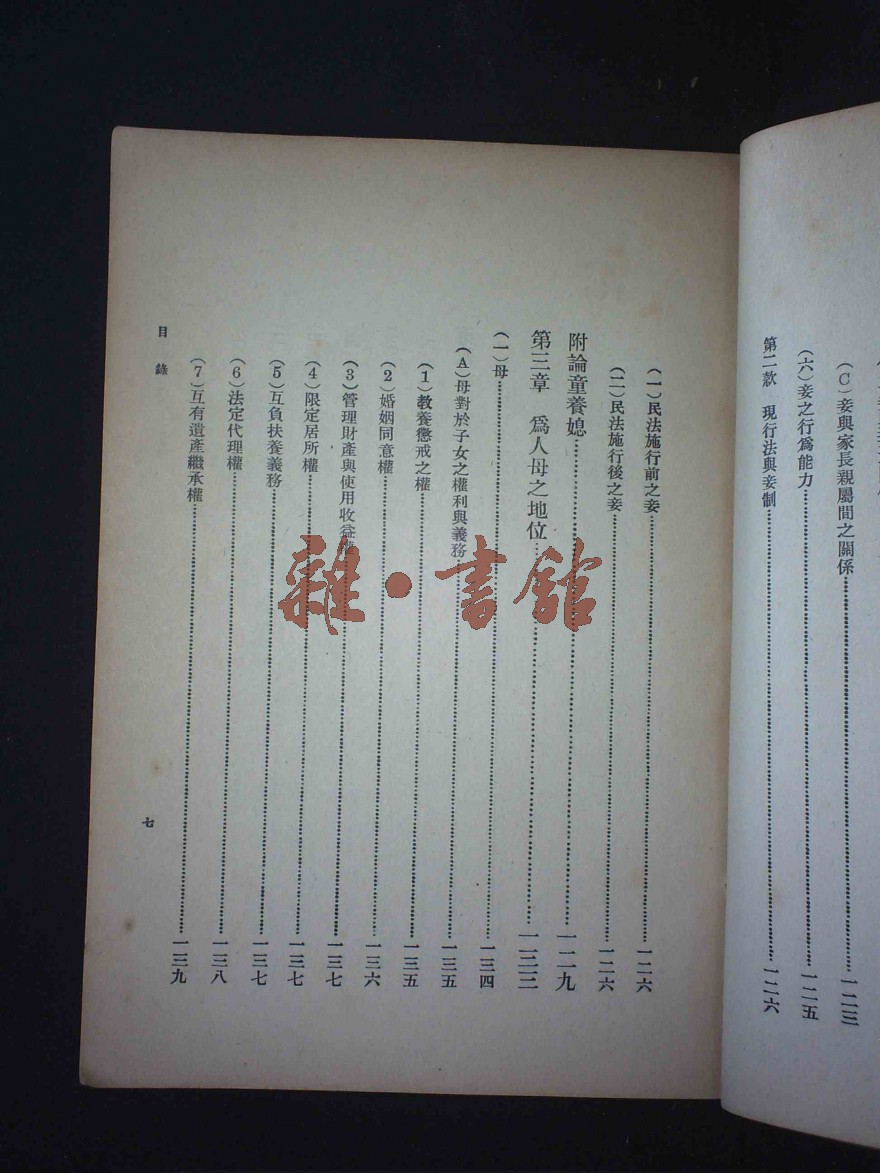 (C)妾與家長親屬間之關係……一二三
(六)妾之行爲能力……一二五
第二款 現行法與妾制……一二六
(一)民法施行前之妾……一二六
(二)民法施行後之妾……一二六
附論童養媳……一二九
第三章 爲人母之地位……一三三
(一)母……一三四
(A)母對於子女之權利與義務……一三五
(1)教養懲戒之權……一三五
(2)婚姻同意權……一三六
(3)管理財產與使用收益權……一三七
(4)限定居所權……一三七
(5)互負扶養義務……一三七
(6)法定代理權……一三八
(7)互有遺產繼承權……一三九
目錄
七
雜·書館